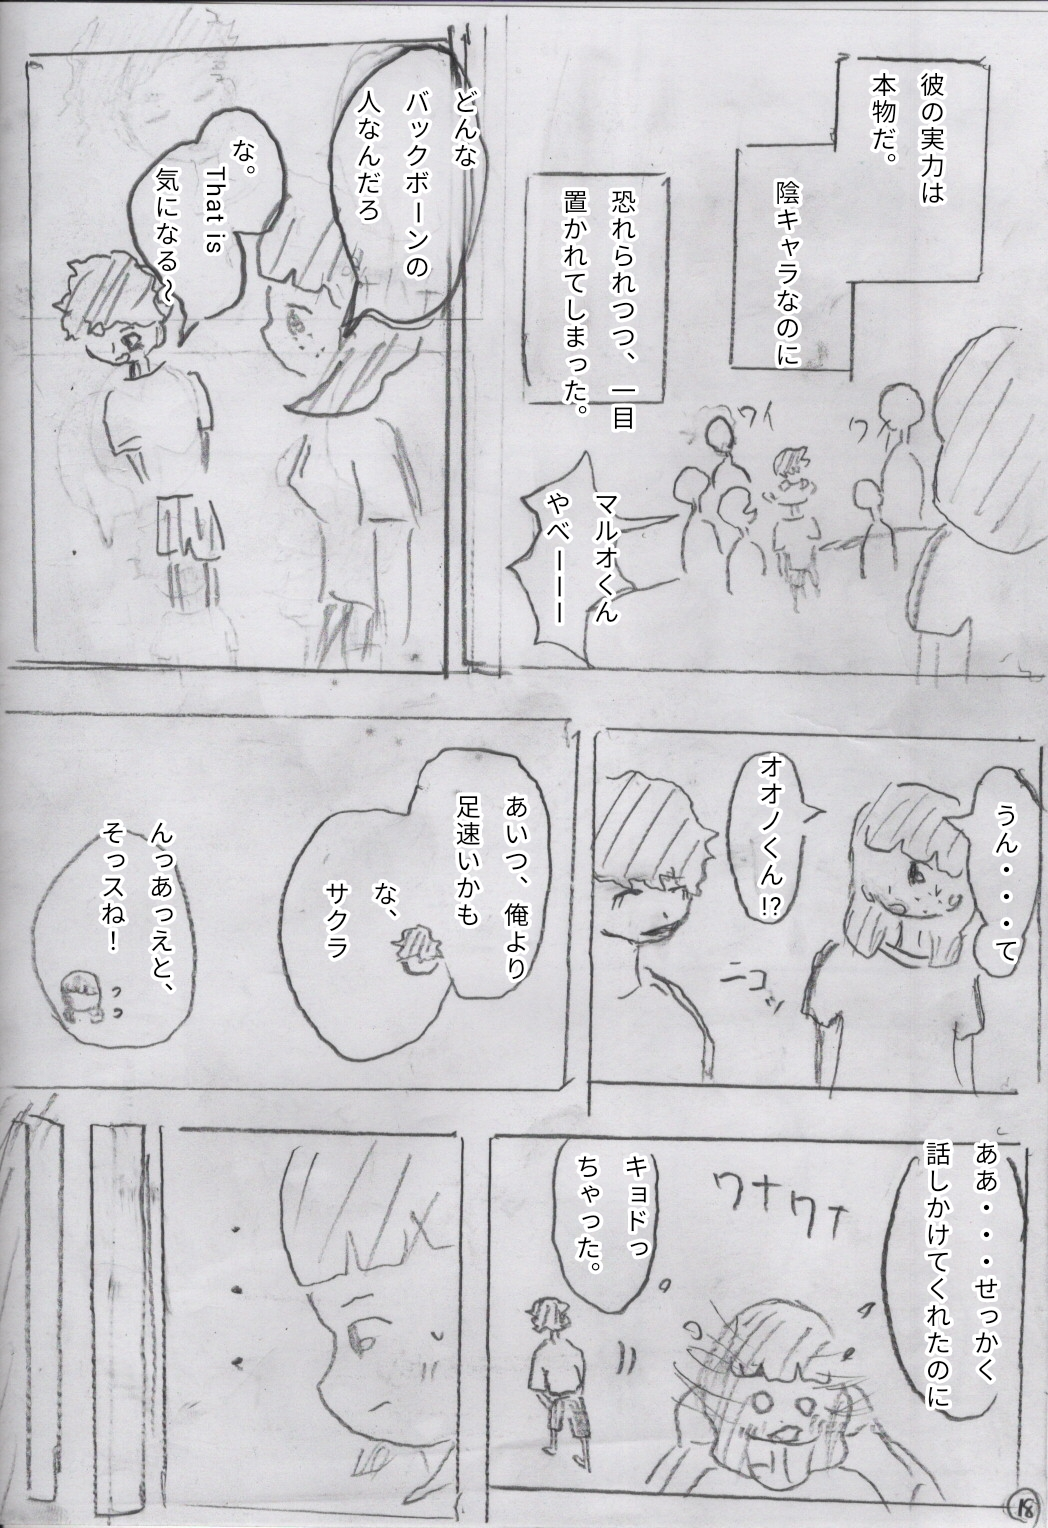 彼の実力は
本物だ。
陰キャラなのに
恐れられつつ、一目
置かれてしまった。
ワイ
ワイ
マルオくん
やべーーー
どんな
バックボーンの
人なんだろ
な。
That is
気になる～
うん・・・て
オオノくん!?
ニコッ
あいつ、俺より
足速いかも
な、
サクラ
んっあっえと、
そっスね！
ああ・・・せっかく
話しかけてくれたのに
ワナワナ
キョドっ
ちゃった。
18